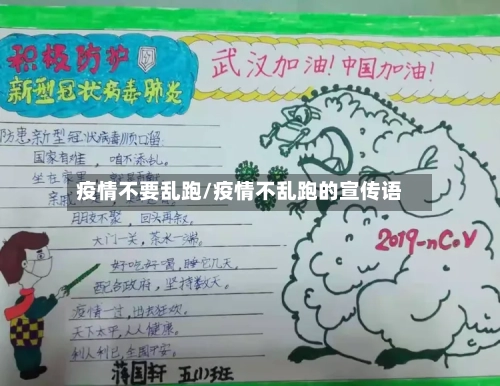 积极防护
新型冠状病毒肺炎
武汉加油！中国加油！
防患新型冠状病毒顺口溜
国家有难，咱不添乱。
坐在家里
亲戚
疫情不要乱跑/疫情不乱跑的宣传语
朋友不聚，回头再叙。
大门一关，茶水一端。
好吃好喝，睡它几天。
配合政府，坚持数天。
疫情一过，出去狂欢。
天下太平，人人健康。
利人利己，全国平安。
2019-nCoV
蒋国轩 五(1)班